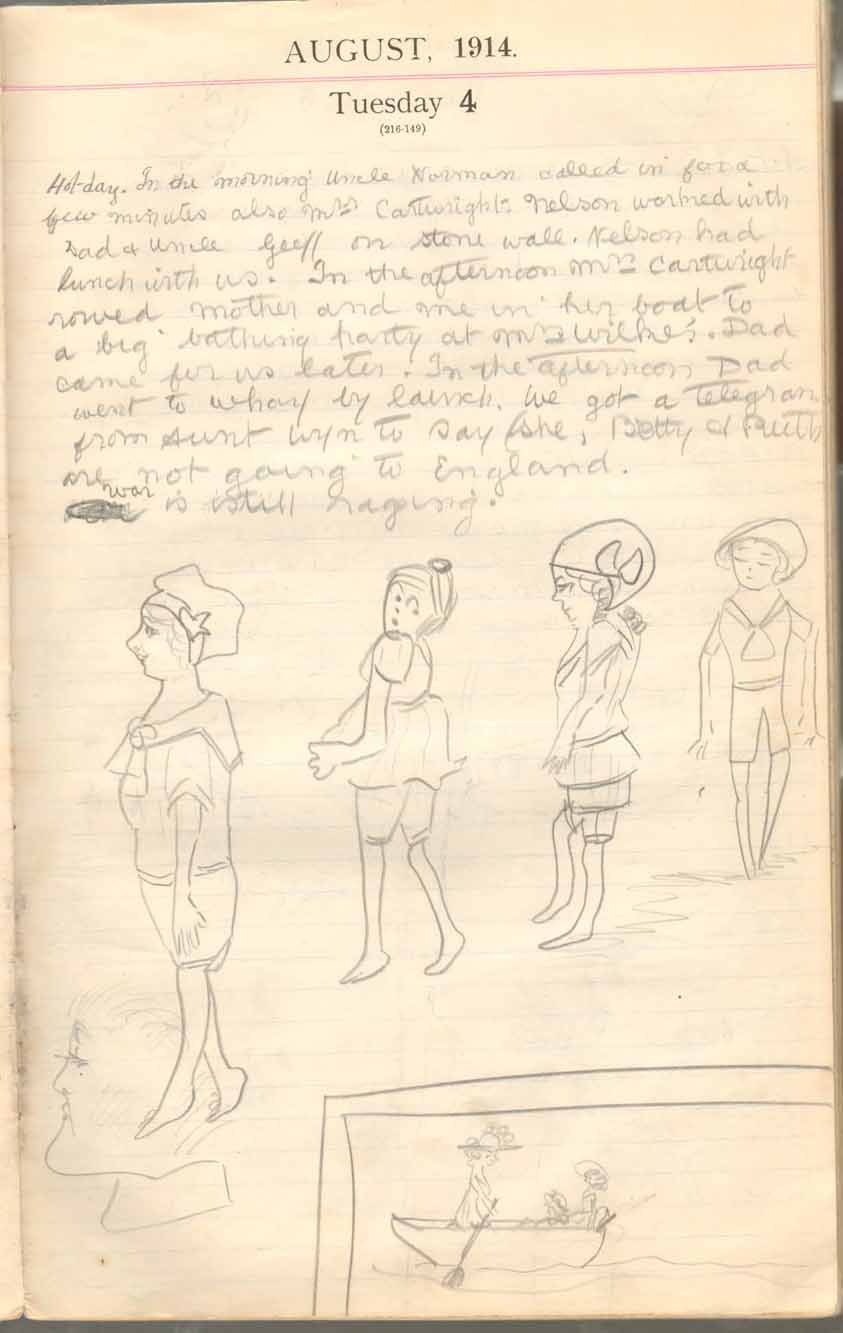 AUGUST, 1914.
Tuesday 4
(216-149)
Hot day. In the morning Uncle Norman called in for a
few minutes also Mrs Cartwright. Nelson worked with
Dad & Uncle Geoff on stone wall. Nelson had
lunch with us. In the afternoon Mrs Cartwright
rowed mother and me in her boat to
a big bathing party at Mrs Wilkes'. Dad
came for us later. In the afternoon Dad
went to whay by launch. We got a telegram
from Aunt Wyn to say she, Betty & Ruth
are not going to England.
war is still raging.